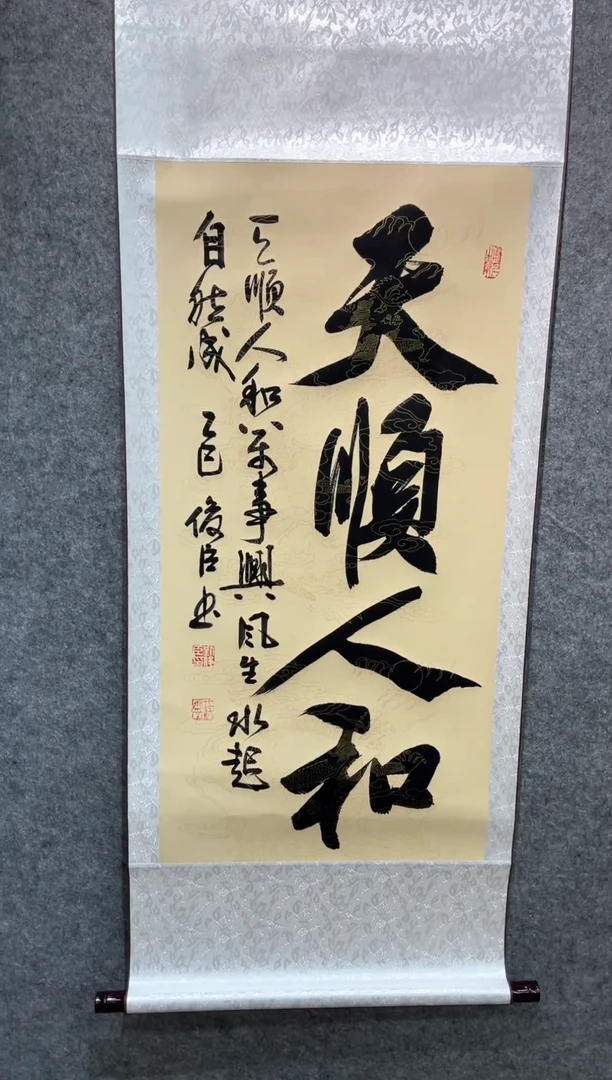 天順人和
天順人和萬事興風生水起
自然成 乙巳 俊臣书